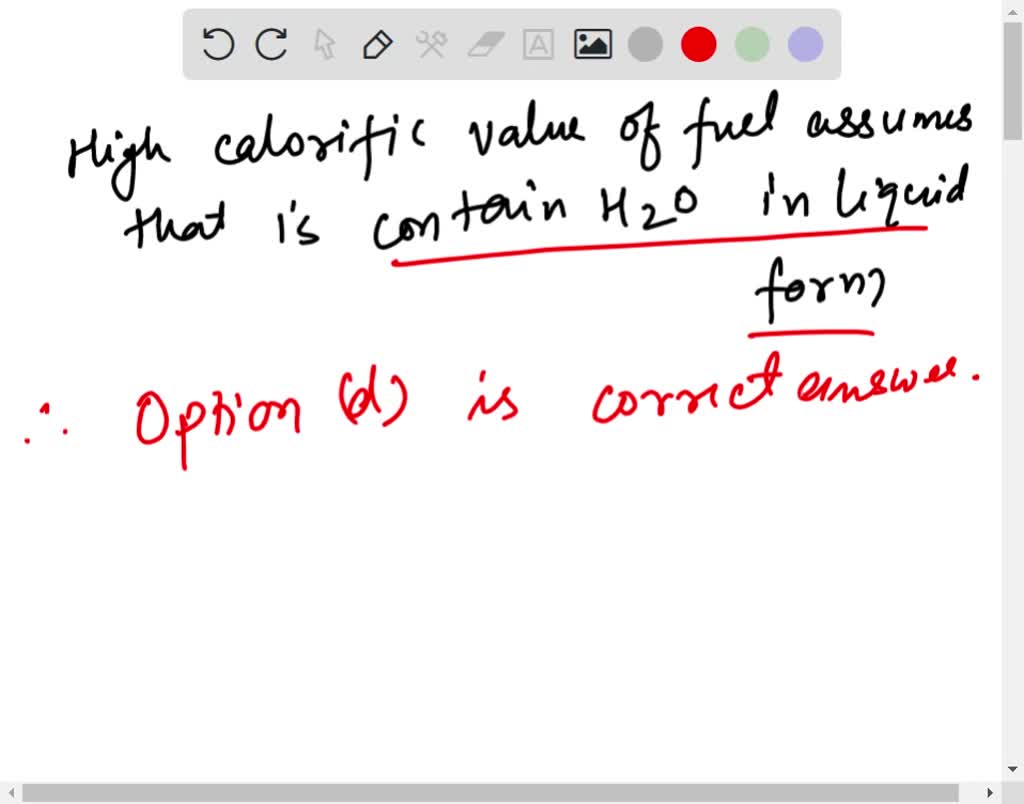 High calorific value of fuel assumes
that is contain H2O in liquid
form
∴ Option (d) is correct answer.